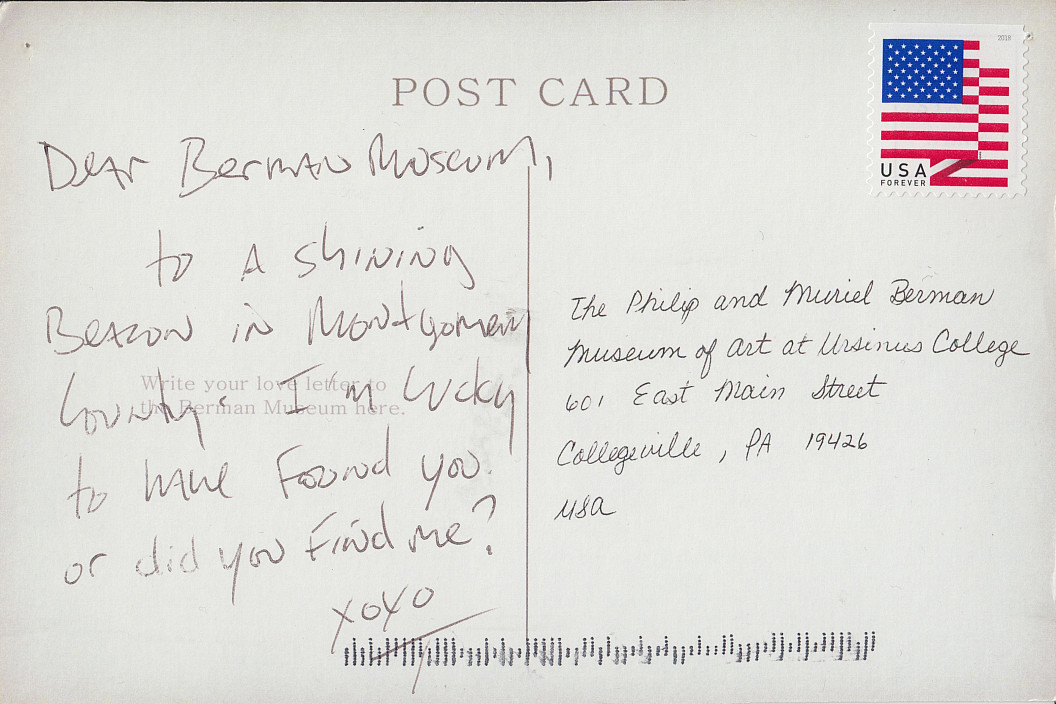 POST CARD
2018
USA
FOREVER
Dear Berman Museum,
to A shining
Beacon in Montgomery
County. I'm lucky
to have Found you.
or did you Find me?
xoxo
Write your love letter to
the Berman Museum here.
The Philip and Muriel Berman
Museum of Art at Ursinus College
601 East Main Street
Collegeville, PA 19426
USA